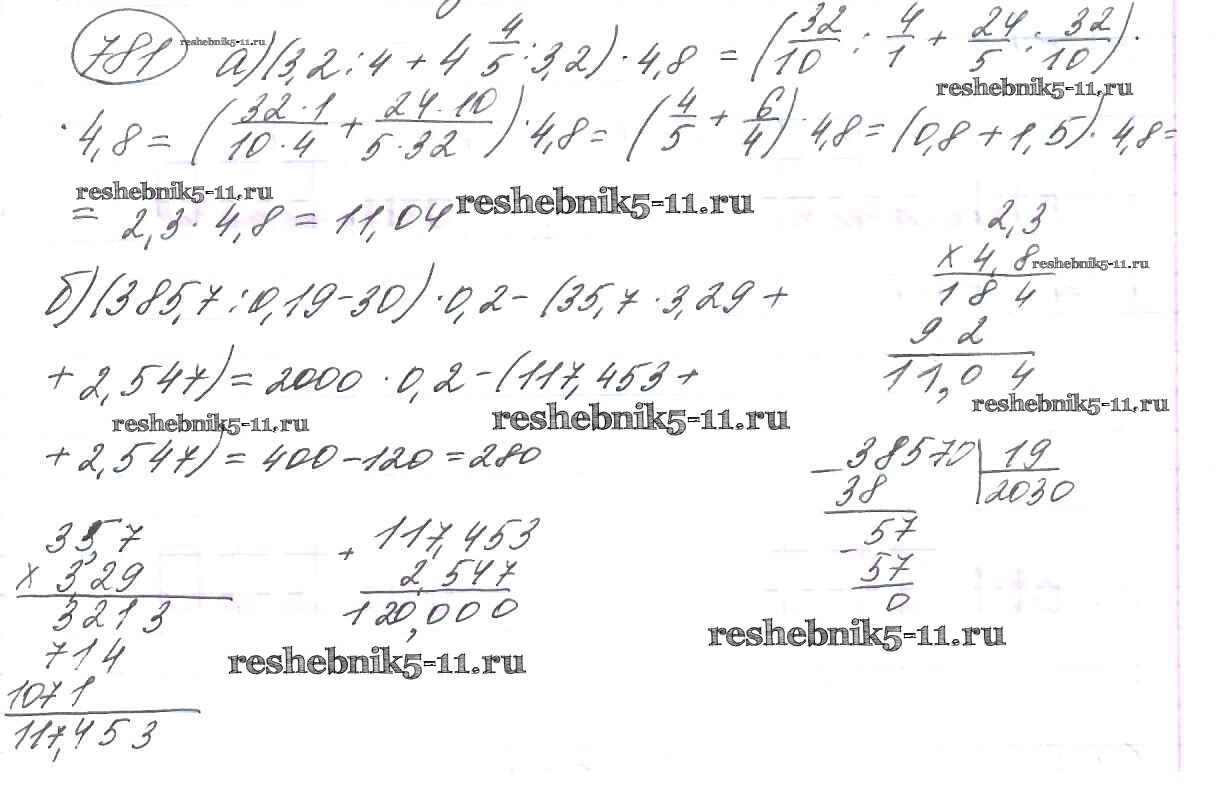 781 reshebnik5-11.ru а) (3,2 : 4 + 4 4/5 : 3,2) · 4,8 = (32/10 : 4/1 + 24/5 : 32/10) ·
reshebnik5-11.ru
· 4,8 = (32·1/10·4 + 24·10/5·32) · 4,8 = (4/5 + 6/4) · 4,8 = (0,8 + 1,5) · 4,8 =
reshebnik5-11.ru reshebnik5-11.ru
= 2,3 · 4,8 = 11,04
2,3
× 4,8 reshebnik5-11.ru
184
92
11,04
reshebnik5-11.ru
б) (385,7 : 0,19 - 30) · 0,2 - (35,7 · 3,29 +
+ 2,547) = 2000 · 0,2 - (117,453 +
reshebnik5-11.ru reshebnik5-11.ru
+ 2,547) = 400 - 120 = 280
38570 | 19
- 38 2030
57
- 57
0
reshebnik5-11.ru
35,7
× 3,29
3213
714
1071
117,453
+ 117,453
2,547
120,000
reshebnik5-11.ru